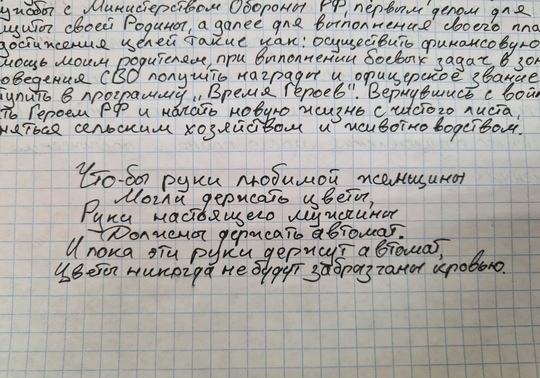 ужбы с Министерством Обороны РФ, первым делом для
щиты своей Родины, а далее для выполнения своего пла
достижения целей такие как: осуществить финансовую
мощь моим родителям, при выполнении боевых задач в зон
оведения СВО получить награды и офицерское звание
тупить в программу „Время Героев". Вернувшись с вой
ть Героем РФ и начать новую жизнь с чистого листа,
няться сельским хозяйством и животноводством.
Что-бы руки любимой женщины
Могли держать цветы,
Руки настоящего мужчины
Должны держать автомат.
И пока эти руки держут автомат,
Цветы никогда не будут забразганы кровью.